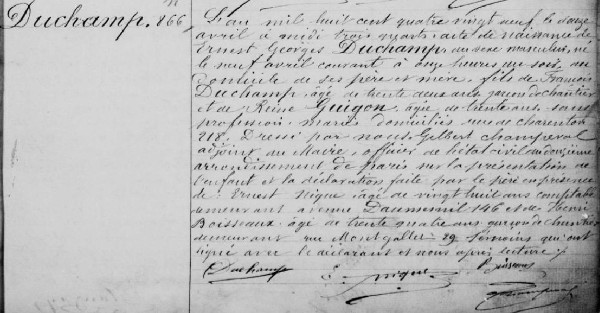 Duchamp. 866
L'an mil huit cent quatre vingt neuf le douze
avril à midi trois quarts acte de naissance de
Ernest Georges Duchamp, du sexe masculin, né
le neuf avril courant à onze heures du soir, au
domicile de ses père et mère, fils de François
Duchamp âgé de trente deux ans garçon de chantier
et de Reine Guigon, âgée de trente ans, sans
profession, mariés domiciliés rue de Charenton
218. Dressé par nous, Gilbert Champeval
adjoint au Maire, officier de l'état-civil du douzième
arrondissement de Paris sur la présentation de
l'enfant et la déclaration faite par le père en présence
de: Ernest Nique âgé de vingt huit ans comptable
demeurant avenue Daumesnil 146 et de Henri
Boisseaux âgé de trente quatre ans garçon de chantier
demeurant rue Montgallet 29 témoins qui ont
signé avec le déclarant et nous après lecture
Duchamp E. Nique Boisseaux